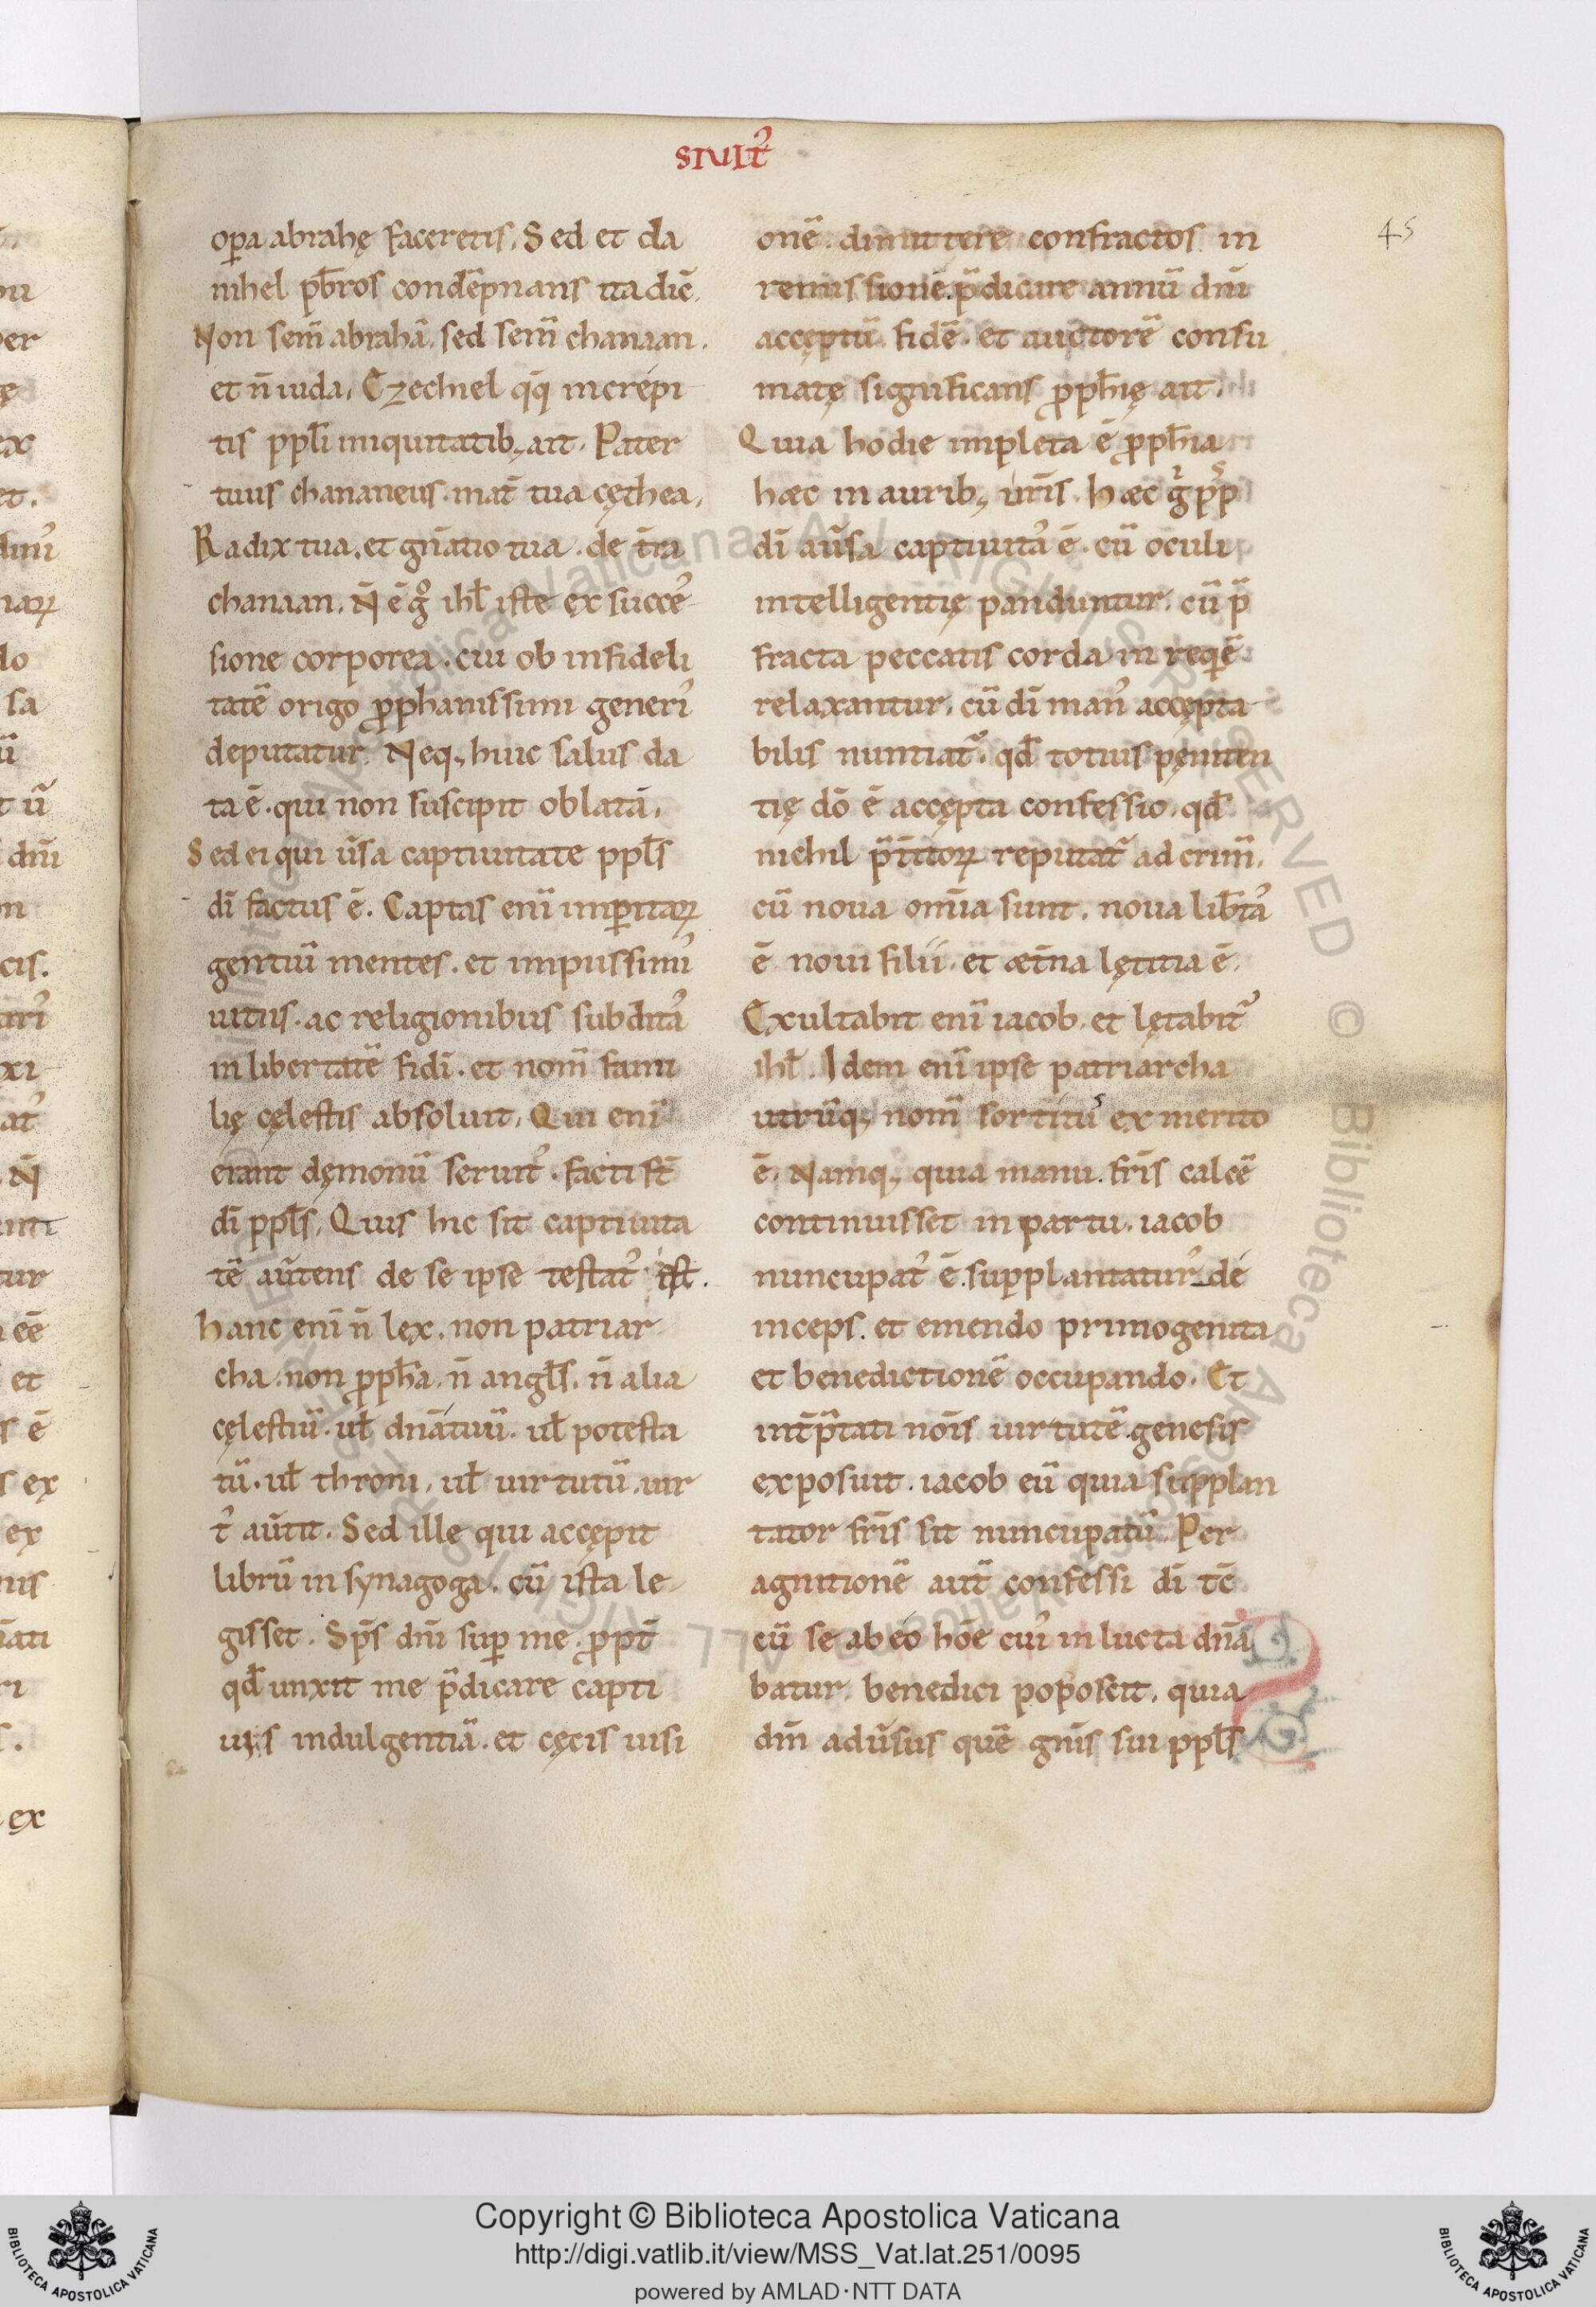 SIUIT᾽
oꝑa abrahę faceretis. Sed et da
nihel pb̄ros condēpnans ita dic̄.
Non sem̄ abrahā. sed sem̄ chanaan.
et n̄ iuda. Ezechiel q̄q; increpi
tis ppl̄i iniquitatib; ait. Pater
tuus chananeus. mat̄ tua cęthea.
Radix tua. et gn̄atio tua. de t̄ra
chanaan. N̄ ē gͦ ihl̄ iste ex succe
sione corporea. cui ob infideli
tatē origo ꝓphanissimi generi᾽
deputatur. Neq; huic salus da
ta ē. qui non suscipit oblatā.
Sed ei qui ūsa captiuitate ppl̄s
dī factus ē. Captas enī imꝑitaꝝ
gentiū mentes. et impiissimi᾽
uitiis. ac religionibus subdita᾽
in libertatē fidī. et nom̄ fami
lię cęlestis absoluit. Qui enī
erant dęmonū seruit᾽. facti st̄
dī ppl̄s. Quis hic sit captiuita
tē aūtens de se ipse testat᾽ iste.
hanc enī n̄ lex. non patriar
cha. non ꝓph̄a. n̄ angl̄s. n̄ alia
cęlestiū. ul̄ dn̄atiuū. ul̄ potesta
tū. ul̄ throni. ul̄ uirtutū. uir
t᾽ aūtit. Sed ille qui accępit
librū in synagoga. cū ista le
gisset. Sp̄s dn̄i suꝑ me. ꝓpt̄
qd̄ unxit me p̄dicare capti
uis indulgentiā. et cęcis uisi
45
onē. dimittere confractos in
remissionē. p̄dicare annū dn̄i
accęptū. fidē. et auctorē consu
matę significans ꝓph̄ię ait.
Quia hodie impleta ē ꝓph̄ia
hæc in aurib; ur̄is. hæc gͥ pp
dī aūsa captiuita᾽ ē. cū oculi
intelligentię panduntur. cū p̄
fracta peccatis corda in reqiē
relaxantur. cū dī man᾽ accępta
bilis nuntiat᾽. qd̄ totius pęniten
tię dō ē accępta confessio. qd̄
nichil p̄t̄itoꝝ reputat᾽ ad crim̄.
cū noua om̄ia sunt. noua lib̄ta᾽
ē noui filii. et æt̄na lętitia ē.
Exultabit enī iacob. et lętabit᾽
ihl̄. Idem enī ipse patriarcha
utrūq; nom̄ sortitus ex merito
ē. Namq; quia manu. fr̄is calcē
continuisset in partu. iacob
nuncupat᾽ ē. supplantatur᾽ de
inceps. et emendo primogenita
et benedictionē occupando. Et
int̄p̄tati nōis uirtutē. genesis
exposuit. iacob eū quia supplan
tator fr̄is sit nuncupatū. Per
agnitionē aut̄ confessi dī tc̄
cū se ab eo hōe cui᾽ in lucta dn̄a
batur. benedici poposcit. quia
dn̄i adūsus quē gn̄is sui ppl̄s
Copyright © Biblioteca Apostolica Vaticana
http://digi.vatlib.it/view/MSS_Vat.lat.251/0095
powered by AMLAD·NTT DATA